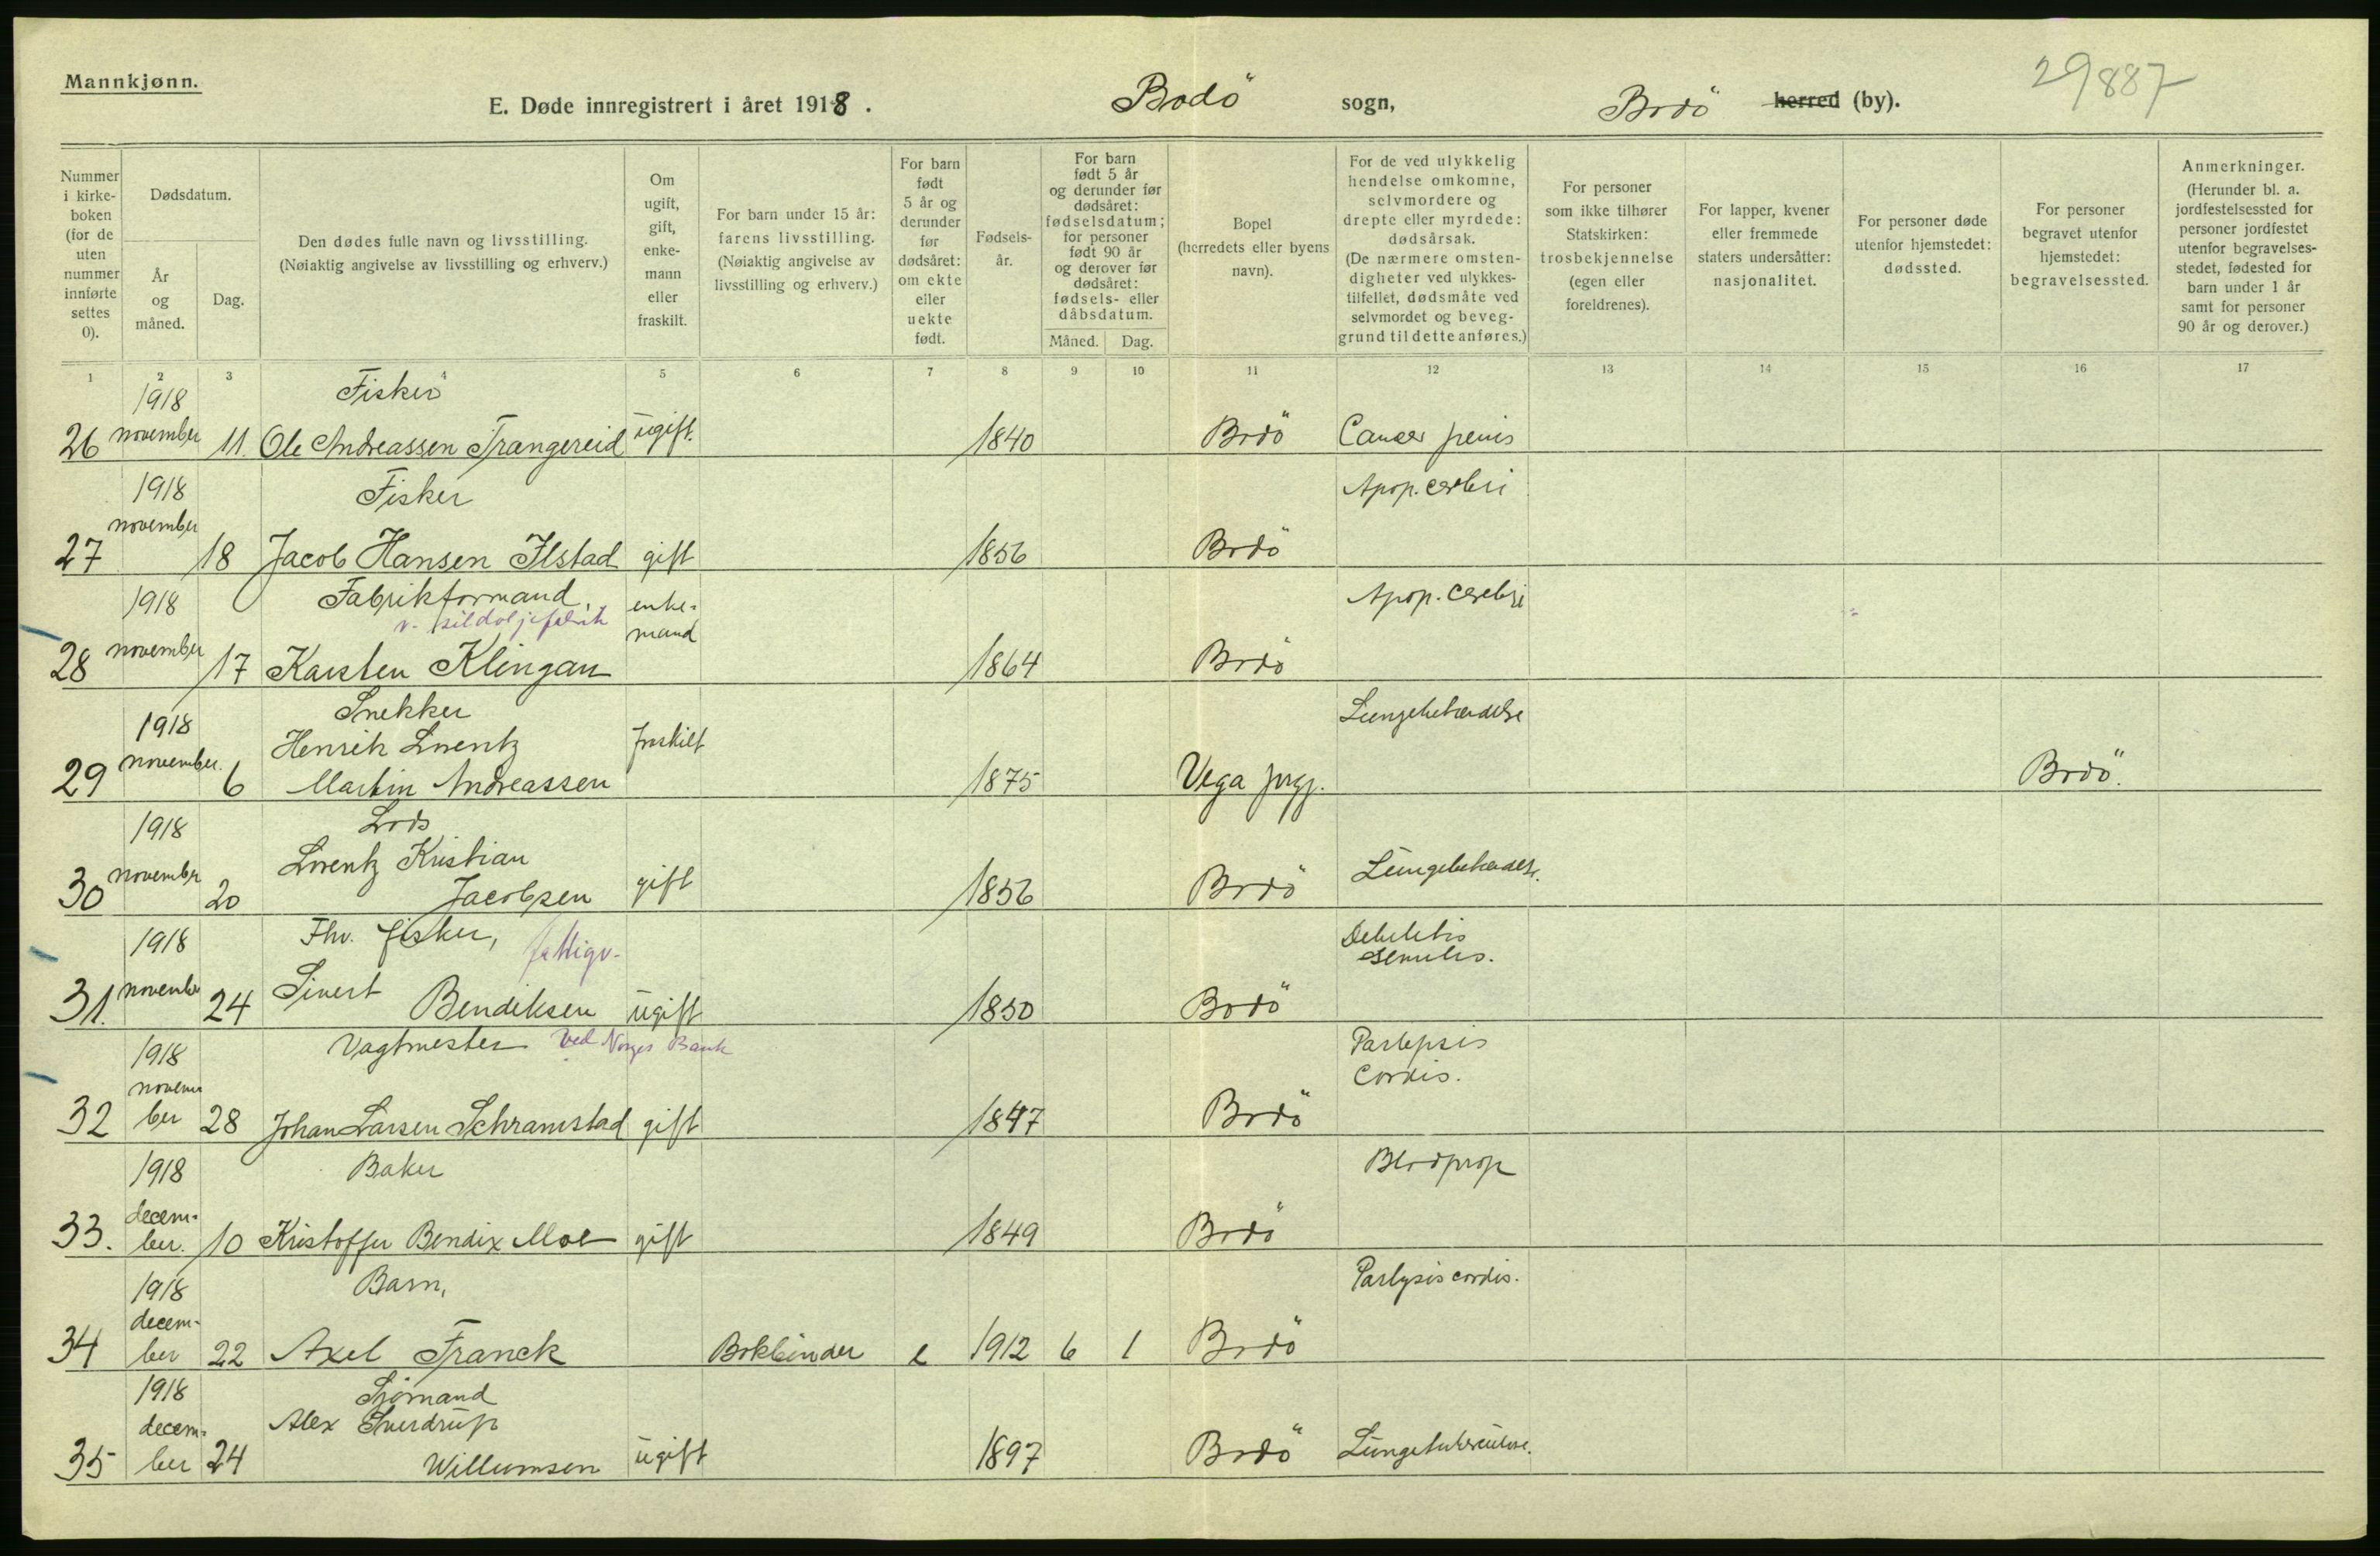 Mannkjønn.
E. Døde innregistrert i året 1918. Bodö sogn, Bodö herred (by). 29887
Nummer i kirke-boken (for de uten nummer innførte settes 0).
Dødsdatum.
År og måned.
Dag.
Den dødes fulle navn og livsstilling.
(Nøiaktig angivelse av livsstilling og erhverv.)
Om ugift, gift, enke-mann eller fraskilt.
For barn under 15 år: farens livsstilling. (Nøiaktig angivelse av livsstilling og erhverv.)
For barn født 5 år og derunder før dødsåret: om ekte eller uekte født.
Fødsels-år.
For barn født 5 år og derunder før dødsåret: fødselsdatum; for personer født 90 år og derover før dødsåret: fødsels- eller dåbsdatum.
Måned. Dag.
Bopel (herredets eller byens navn).
For de ved ulykkelig hendelse omkomne, selvmordere og drepte eller myrdede: dødsårsak. (De nærmere omsten-digheter ved ulykkes-tilfellet, dødsmåte ved selvmordet og beveg-grund til dette anføres.)
For personer som ikke tilhører Statskirken: trosbekjennelse (egen eller foreldrenes).
For lapper, kvener eller fremmede staters undersåtter: nasjonalitet.
For personer døde utenfor hjemstedet: dødssted.
For personer begravet utenfor hjemstedet: begravelsessted.
Anmerkninger. (Herunder bl. a. jordfestelsessted for personer jordfestet utenfor begravelses-stedet, fødested for barn under 1 år samt for personer 90 år og derover.)
1 2 3 4 5 6 7 8 9 10 11 12 13 14 15 16 17
1918 Fisker
26 november 11. Ole Andreassen Trangereid ugift. 1840 Bodö Cancer penis
1918 Fisker Apop. cerebri
27 november 18 Jacob Hansen Ilstad gift 1856 Bodö
1918 Fabrikformand, enke- Apop. Cerebri
v. sildoljefabrik mand
28 november 17 Karsten Klingan 1864 Bodö
Snekker Lungebetændelse
1918 Henrik Lorentz fraskilt
29 november. 6 Martin Andreassen 1875 Vega prgj. Bodö.
1918 Lods
Lorentz Kristian Lungebetændelse.
30 november 20 Jacobsen gift 1856 Bodö
1918 Fhv. fisker, fattigv. Debilitis
senilis.
31. november 24 Sivert Bendiksen ugift 1850 Bodö
1918 Vagtmester Ved Norges Bank Parlepsis
Cordis.
32 november 28 Johan Larsen Schramstad gift 1847 Bodö
1918 Baker Blodprop
33. decem-
ber. 10 Kristoffer Bendix Moe gift 1849 Bodö
1918 Barn, Parlysis cordis.
decem-
34 ber 22 Axel Franck Bokbinder e 1912 6 1 Bodö
1918 Sjømand
decem- Alex Sverdrup
35 ber 24 Willumsen ugift 1897 Bodö Lungetuberculose.